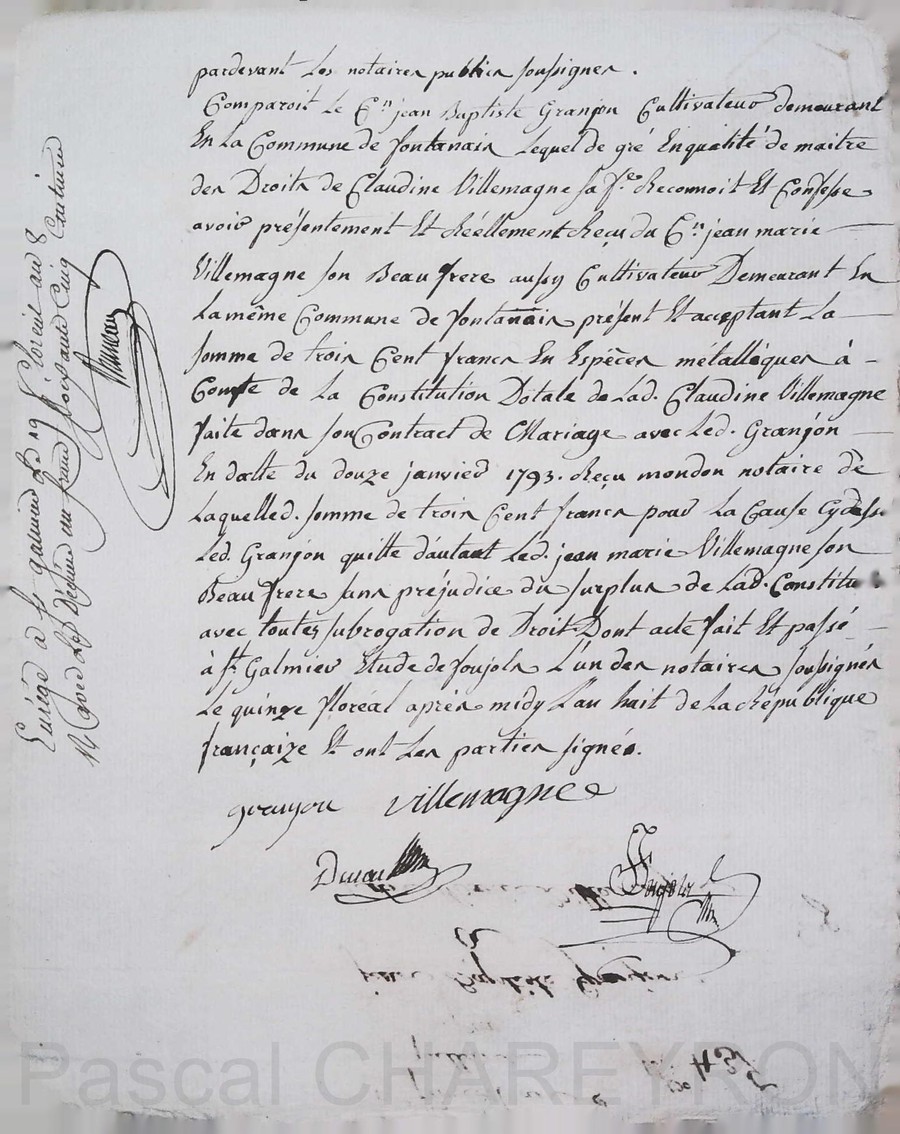 pardevant Les notaires publics soussignés.
Comparoit Le C.en jean Baptiste Granjon Cultivateur demeurant
En La Commune de fontanais Lequel de gré En qualité de maitre
des Droits de Claudine Villemagne sa f.e Reconnoit Et Confesse
avoir présentement Et Réellement Reçu du C.en jean marie
Villemagne son Beau frere aussy Cultivateur Demeurant En
La même Commune de fontanais présent Et acceptant La
somme de trois Cent francs En Espèces métalléques à
Compte de La Constitution Dotale de Lad. Claudine Villemagne
faite dans son Contract de Mariage avec Led. Granjon
En datte du douze janvier 1793. Reçu mondon notaire de
Laquelled. somme de trois Cent francs pour La Cause Cydess.
Led. Granjon quitte d'autant Led. jean marie Villemagne son
Beau frere sans préjudice du surplus de Lad. Constitu
avec toutes subrogation de Droit. Dont acte fait Et passé
à St. Galmier Etude de foujols L'un des notaires soussignés
Le quinze floréal après midy L'an huit de La République
françaize Et ont Les parties signés.
granjon Villemagne
foujols
Enrégé à St galmier Le 19 floreal an 8
Reçu un franc soixante Cinq Centimes
Pascal CHAREYRON